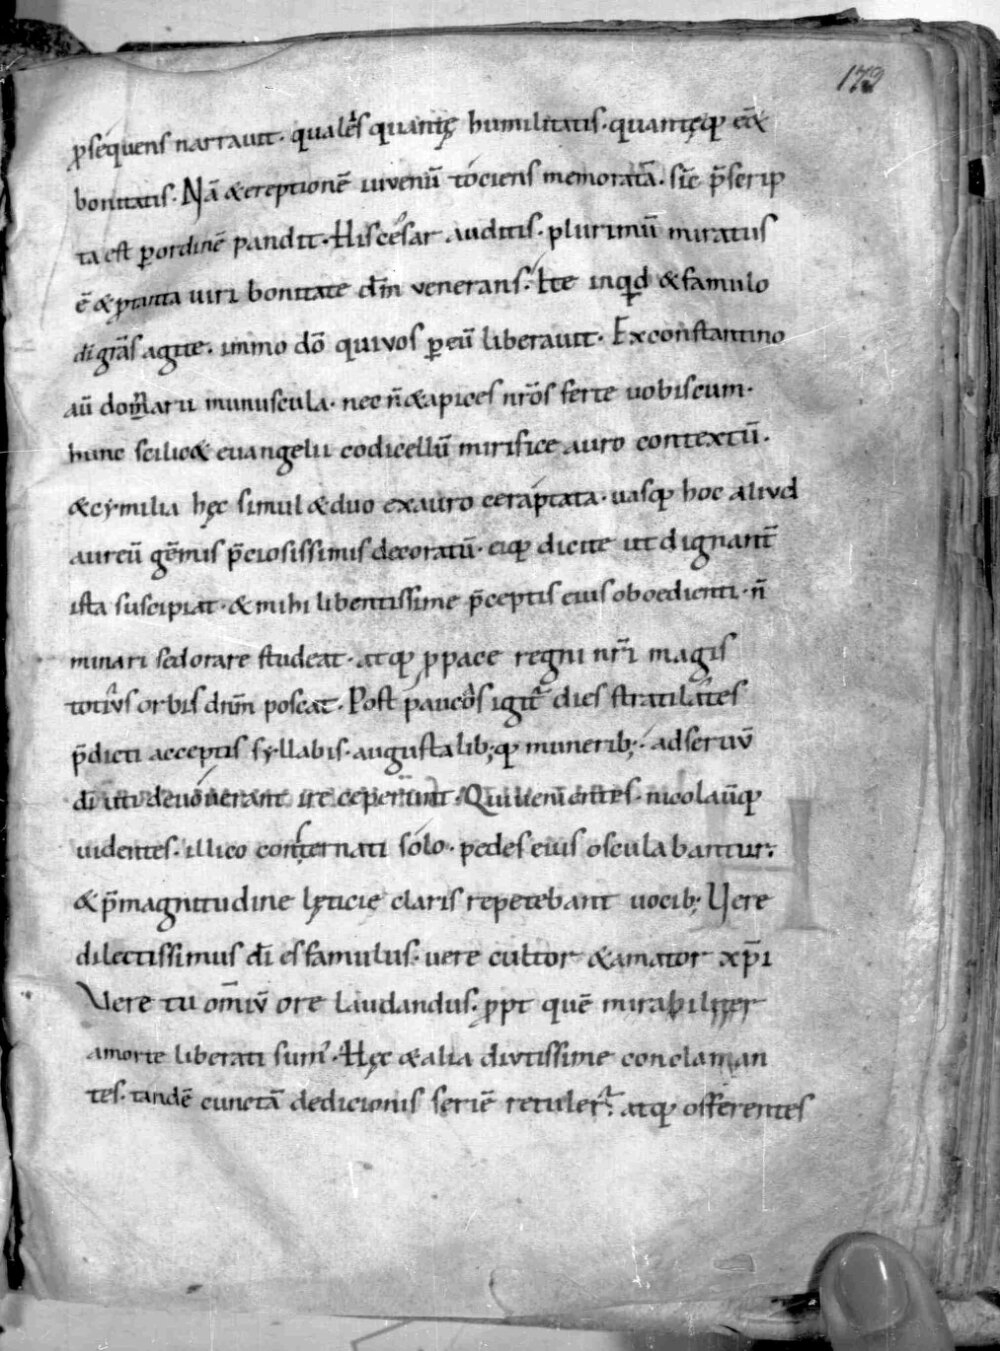 173
ꝓsequens narrauit. qualis quantę humilitatis. quantęq; eēt
bonitatis. Nā & ereptionē iuvenū tociens memoratā. sic p̄scrip
ta est ꝑ ordinē pandit. His cesar auditis. plurimū miratus
ē & ꝓ tanta uiri bonitate dn̄m venerans. Ite inquid & famulo
di gr̄as agite. immo dō qui vos ꝑ eū liberauit. Ex constantino
aū domatarii munuscula. nec n̄ & apices nr̄os ferte uobiscum.
hunc scilic& euangelii codicellū mirifice auro contextū.
& cymilia hęc simul & duo ex auro ceraptata. uasq; hoc aliud
aureū gēmis p̄ciosissimis decoratū. eiq; dicite ut dignant̄
ista suscipiat. & mihi libentissime p̄ceptis eius oboedienti. n̄
minari sed orare studeat. atq; ꝓ pace regni nr̄i magis
totius orbis dnm̄ poscat. Post paucos igit̄ dies stratilates
p̄dicti acceptis syllabis. augustalib;q; munerib;. ad seruū
dī uti devouerant ire ceperunt. Qui uenientes. nicolaūq;
uidentes. illico consternati solo. pedes eius osculabantur.
& p̄ magnitudine lęticie claris repetebant uocib; Vere
dilectissimus dī es famulus. vere cultor & amator xp̄i
Vere tu omiū ore laudandus. ꝓpt quē mirabiliter
a morte liberati sum̄. Hęc & alia diutissime conclaman
tes. tandē cunctā dedicionis seriē retuler̄. atq; offerentes